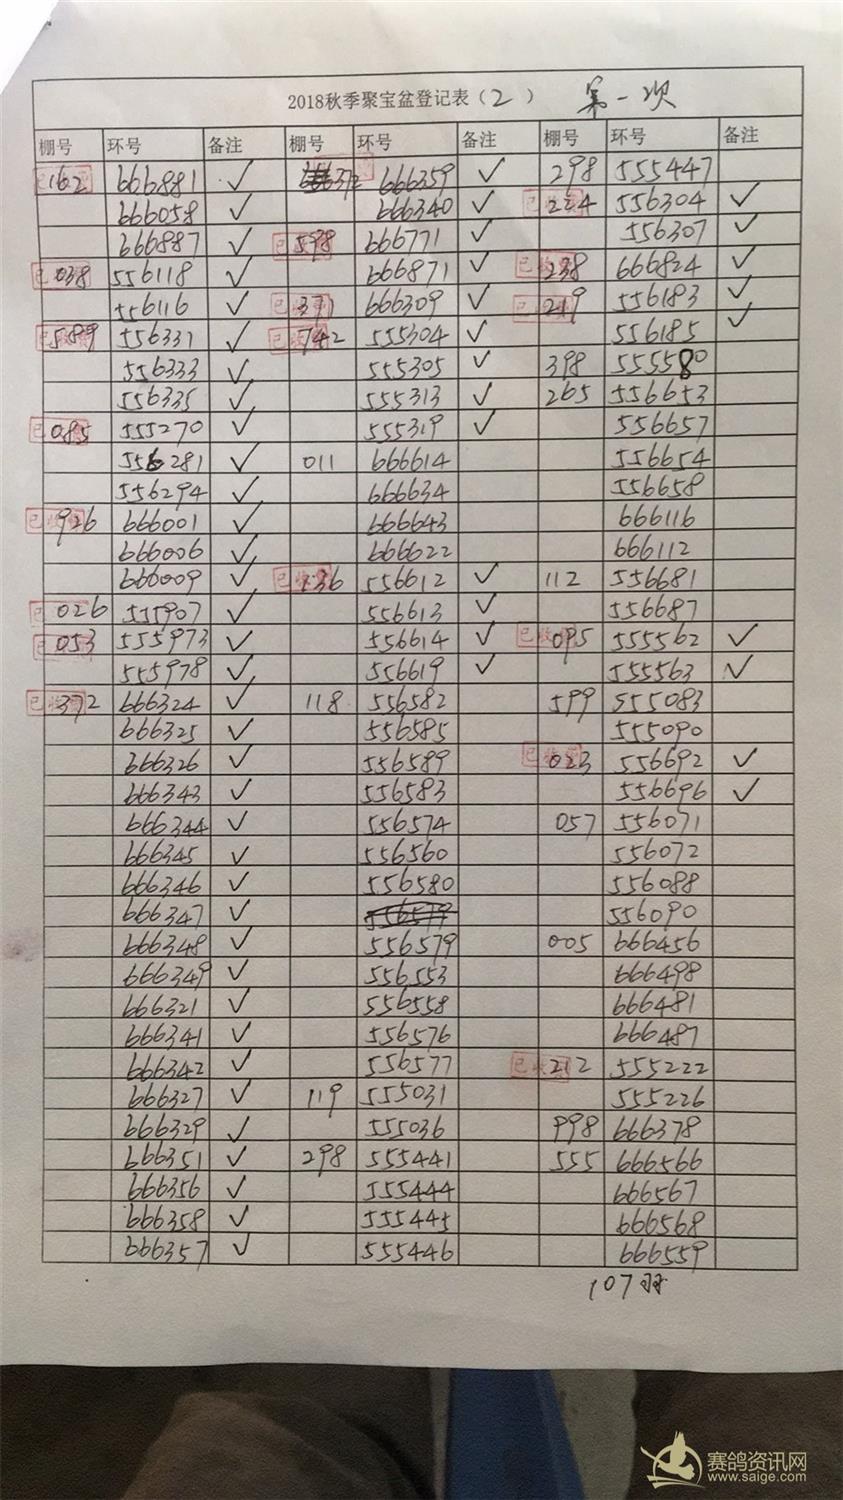 2018秋季聚宝盆登记表（2） 第一次
棚号 环号 备注 棚号 环号 备注 棚号 环号 备注
162 666881 ✓ 372 666359 ✓ 298 555447
666058 ✓ 666340 ✓ 已收费 224 556304 ✓
666887 ✓ 已收费 598 666771 ✓ 556307 ✓
已收费 038 556118 ✓ 666871 ✓ 已收费 238 666824 ✓
556116 ✓ 已收费 371 666309 ✓ 已收费 219 556183 ✓
已收费 589 556331 ✓ 已收费 742 555304 ✓ 556185 ✓
556333 ✓ 555305 ✓ 398 555580
556335 ✓ 555313 ✓ 265 556653
已收费 085 555270 ✓ 555319 ✓ 556657
556281 ✓ 011 666614 556654
556294 ✓ 666634 556658
已收费 926 666001 ✓ 666643 666116
666006 ✓ 666622 666112
666009 ✓ 已收费 136 556612 ✓ 112 556681
已收费 026 555907 ✓ 556613 ✓ 556687
已收费 053 555973 ✓ 556614 ✓ 已收费 095 555562 ✓
555978 ✓ 556619 ✓ 555563 ✓
已收费 372 666324 ✓ 118 556582 599 555083
666325 ✓ 556585 555090
666326 ✓ 556589 已收费 023 556692 ✓
666343 ✓ 556583 556696 ✓
666344 ✓ 556574 057 556071
666345 ✓ 556560 556072
666346 ✓ 556580 556088
666347 ✓ 556579 556090
666348 ✓ 556579 005 666456
666349 ✓ 556553 666498
666321 ✓ 556558 666481
666341 ✓ 556576 666487
666342 ✓ 556577 已收费 212 555222
666327 ✓ 119 555031 555226
666329 ✓ 555036 998 666378
666351 ✓ 298 555441 555 666566
666356 ✓ 555444 666567
666358 ✓ 555445 666568
666357 ✓ 555446 666559
107羽
赛鸽资讯网
www.saige.com